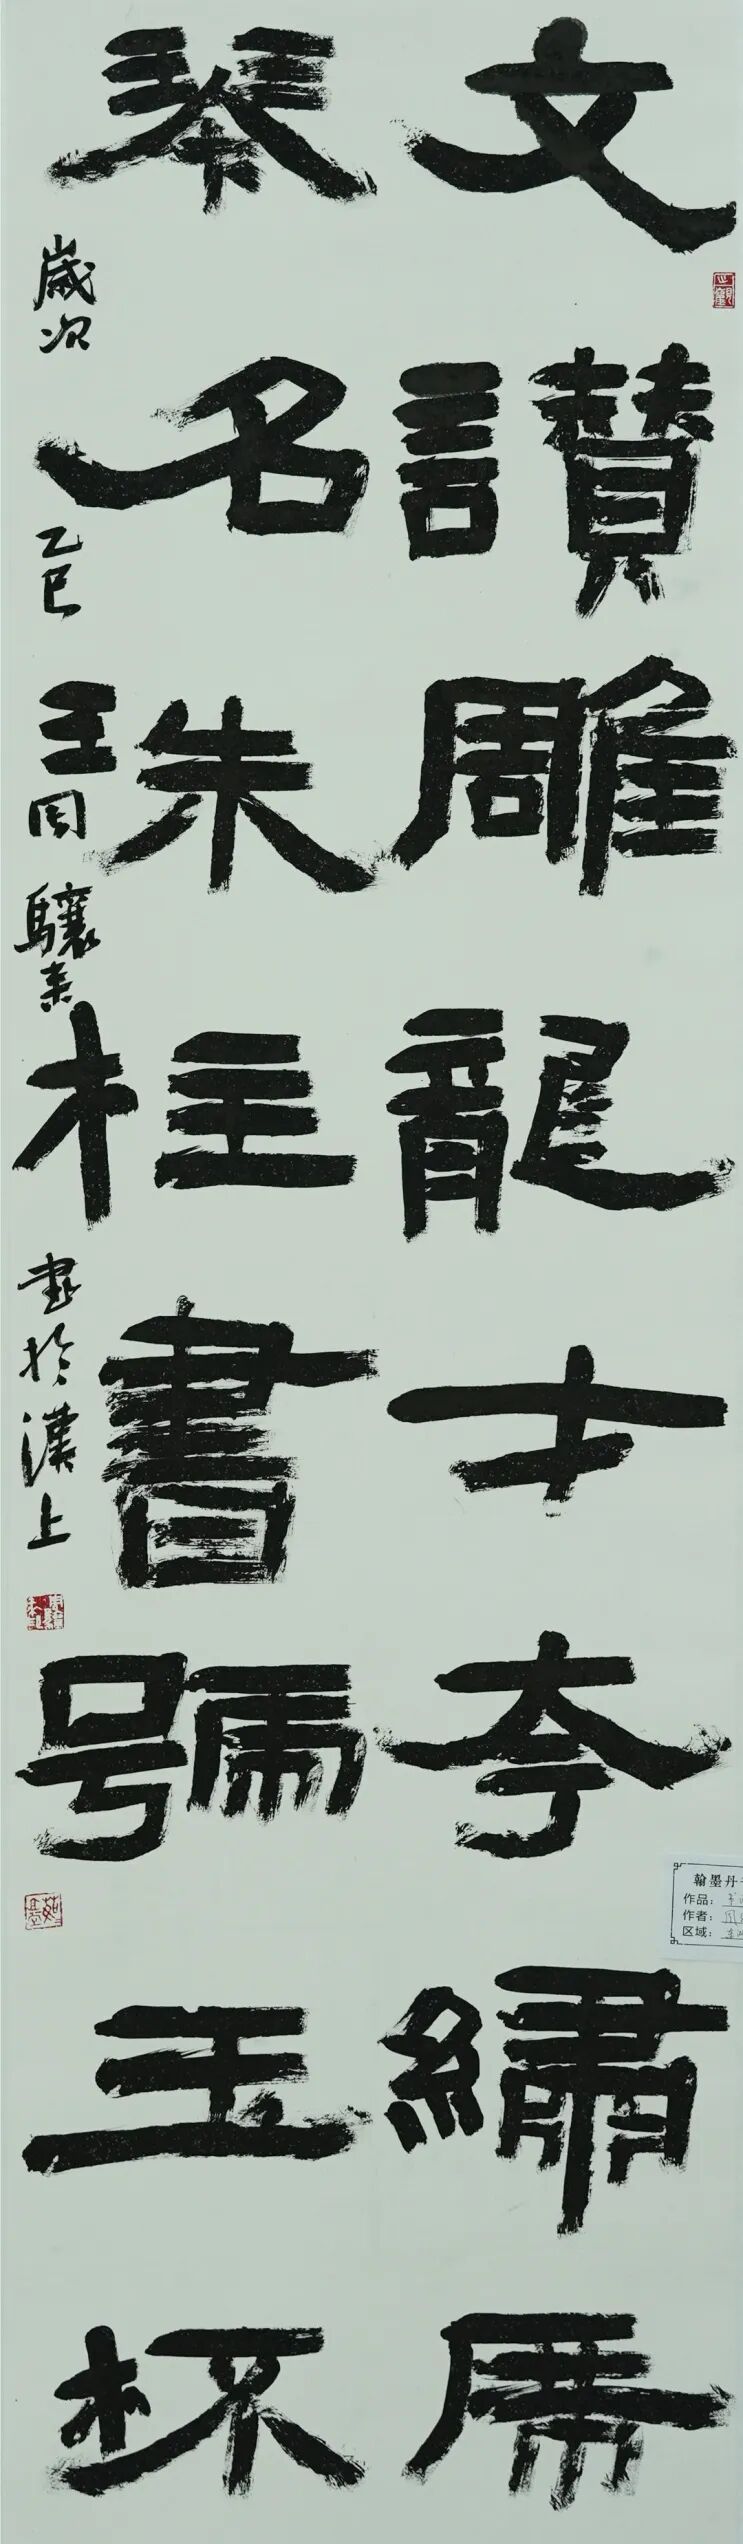 文讚雕龍才夸繡虎
琴名珠柱書號玉杯
歲次乙巳王驤书於漢上
翰墨丹
作品：
作者：
区域：